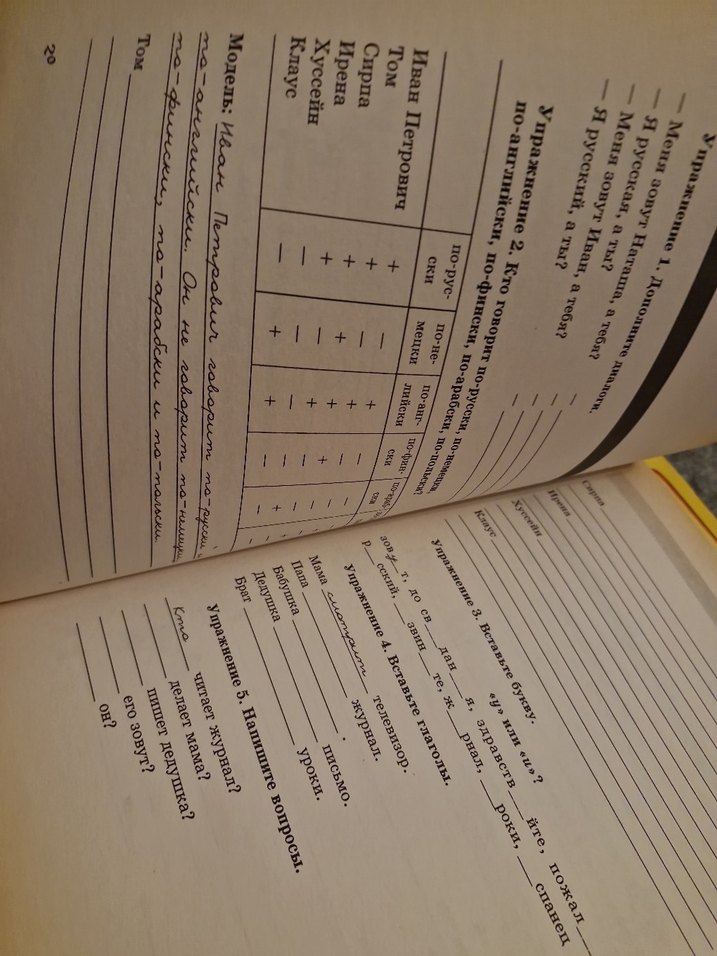 Упражнение 1. Дополните диалоги.
— Меня зовут Наташа, а тебя? —
— Я русская, а ты? —
— Меня зовут Иван, а тебя? —
— Я русский, а ты? —
Упражнение 2. Кто говорит по-русски, по-немецки,
по-английски, по-фински, по-арабски, по-польски?
по-рус-ски по-не-мецки по-анг-лийски по-фин-ски
Иван Петрович + — + — —
Том + — + — —
Сирпа + + + + —
Ирена + — + — —
Хуссейн — — — — +
Клаус — + + — —
Модель: Иван Петрович говорит по-русски и
по-английски. Он не говорит по-немецки,
по-фински, по-арабски и по-польски.
Том
20
Сирпа
Ирена
Хуссейн
Клаус
Упражнение 3. Вставьте букву.
«у» или «и»?
зову т, до св__дан__я, здравств__йте, пожал__
р__сский, __звин__те, ж__рнал, __роки, __спанец
Упражнение 4. Вставьте глаголы.
Мама смотрит телевизор.
Папа ____ журнал.
Бабушка ____.
Дедушка ____ письмо.
Брат ____ уроки.
Упражнение 5. Напишите вопросы.
Кто читает журнал?
____ делает мама?
____ пишет дедушка?
____ его зовут?
____ он?